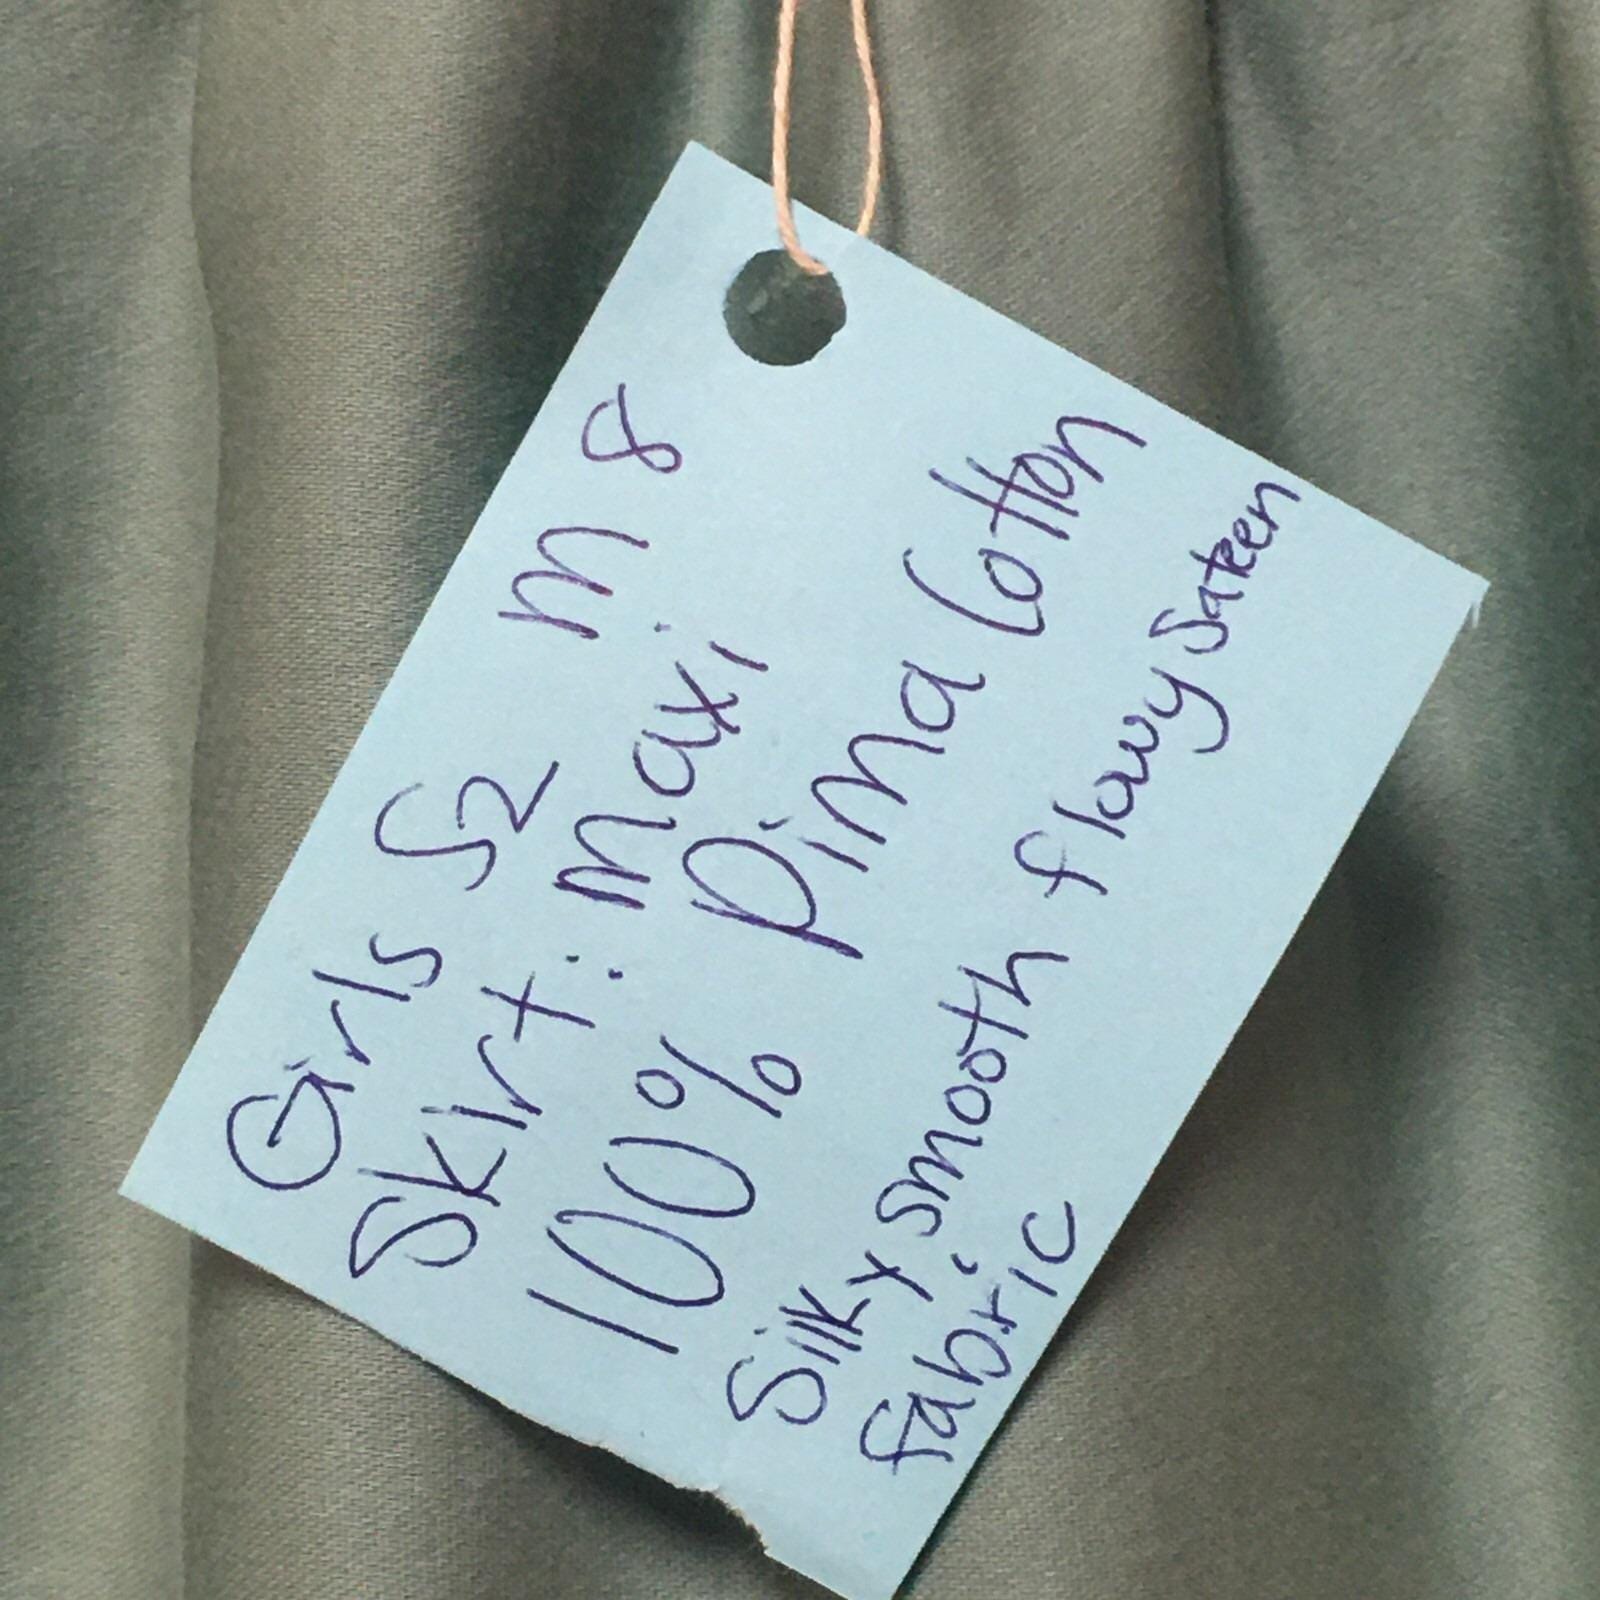 Girls S2 M 8
Skirt: maxi
100% Pima Cotton
Silky smooth flowy Sateen
fabric